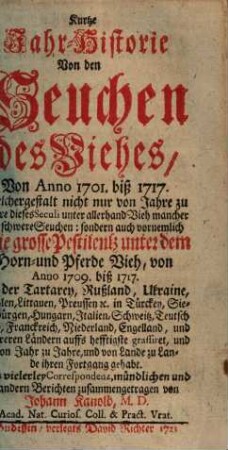 Kurtze
Jahr-Historie
Von den
Seuchen
des Viehes/
Von Anno 1701. biß 1717.
lchergestalt nicht nur von Jahre zu
re dieses Seculi unter allerhand Vieh mancher
schwere Seuchen: sondern auch vornemlich
ie grosse Pestilentz unter dem
Horn- und Pferde Vieh, von
Anno 1709. biß 1717.
der Tartarey, Rußland, Ukraine,
len, Littauen, Preussen ꝛc. in Türcken, Sie-
ürgen, Hungarn, Italien, Schweitz, Teutsch
, Franckreich, Niederland, Engelland, und
reren Ländern auffs hefftigste grassiret, und
on Jahr zu Jahre, und von Lande zu Lan-
de ihren Fortgang gehabt.
vielerley Correspondenz, mündlichen und
andern Berichten zusammengetragen von
Johann Kanold, M. D.
Acad. Nat. Curios. Coll. & Pract. Vrat.
Budißin, verlegts David Richter 1721